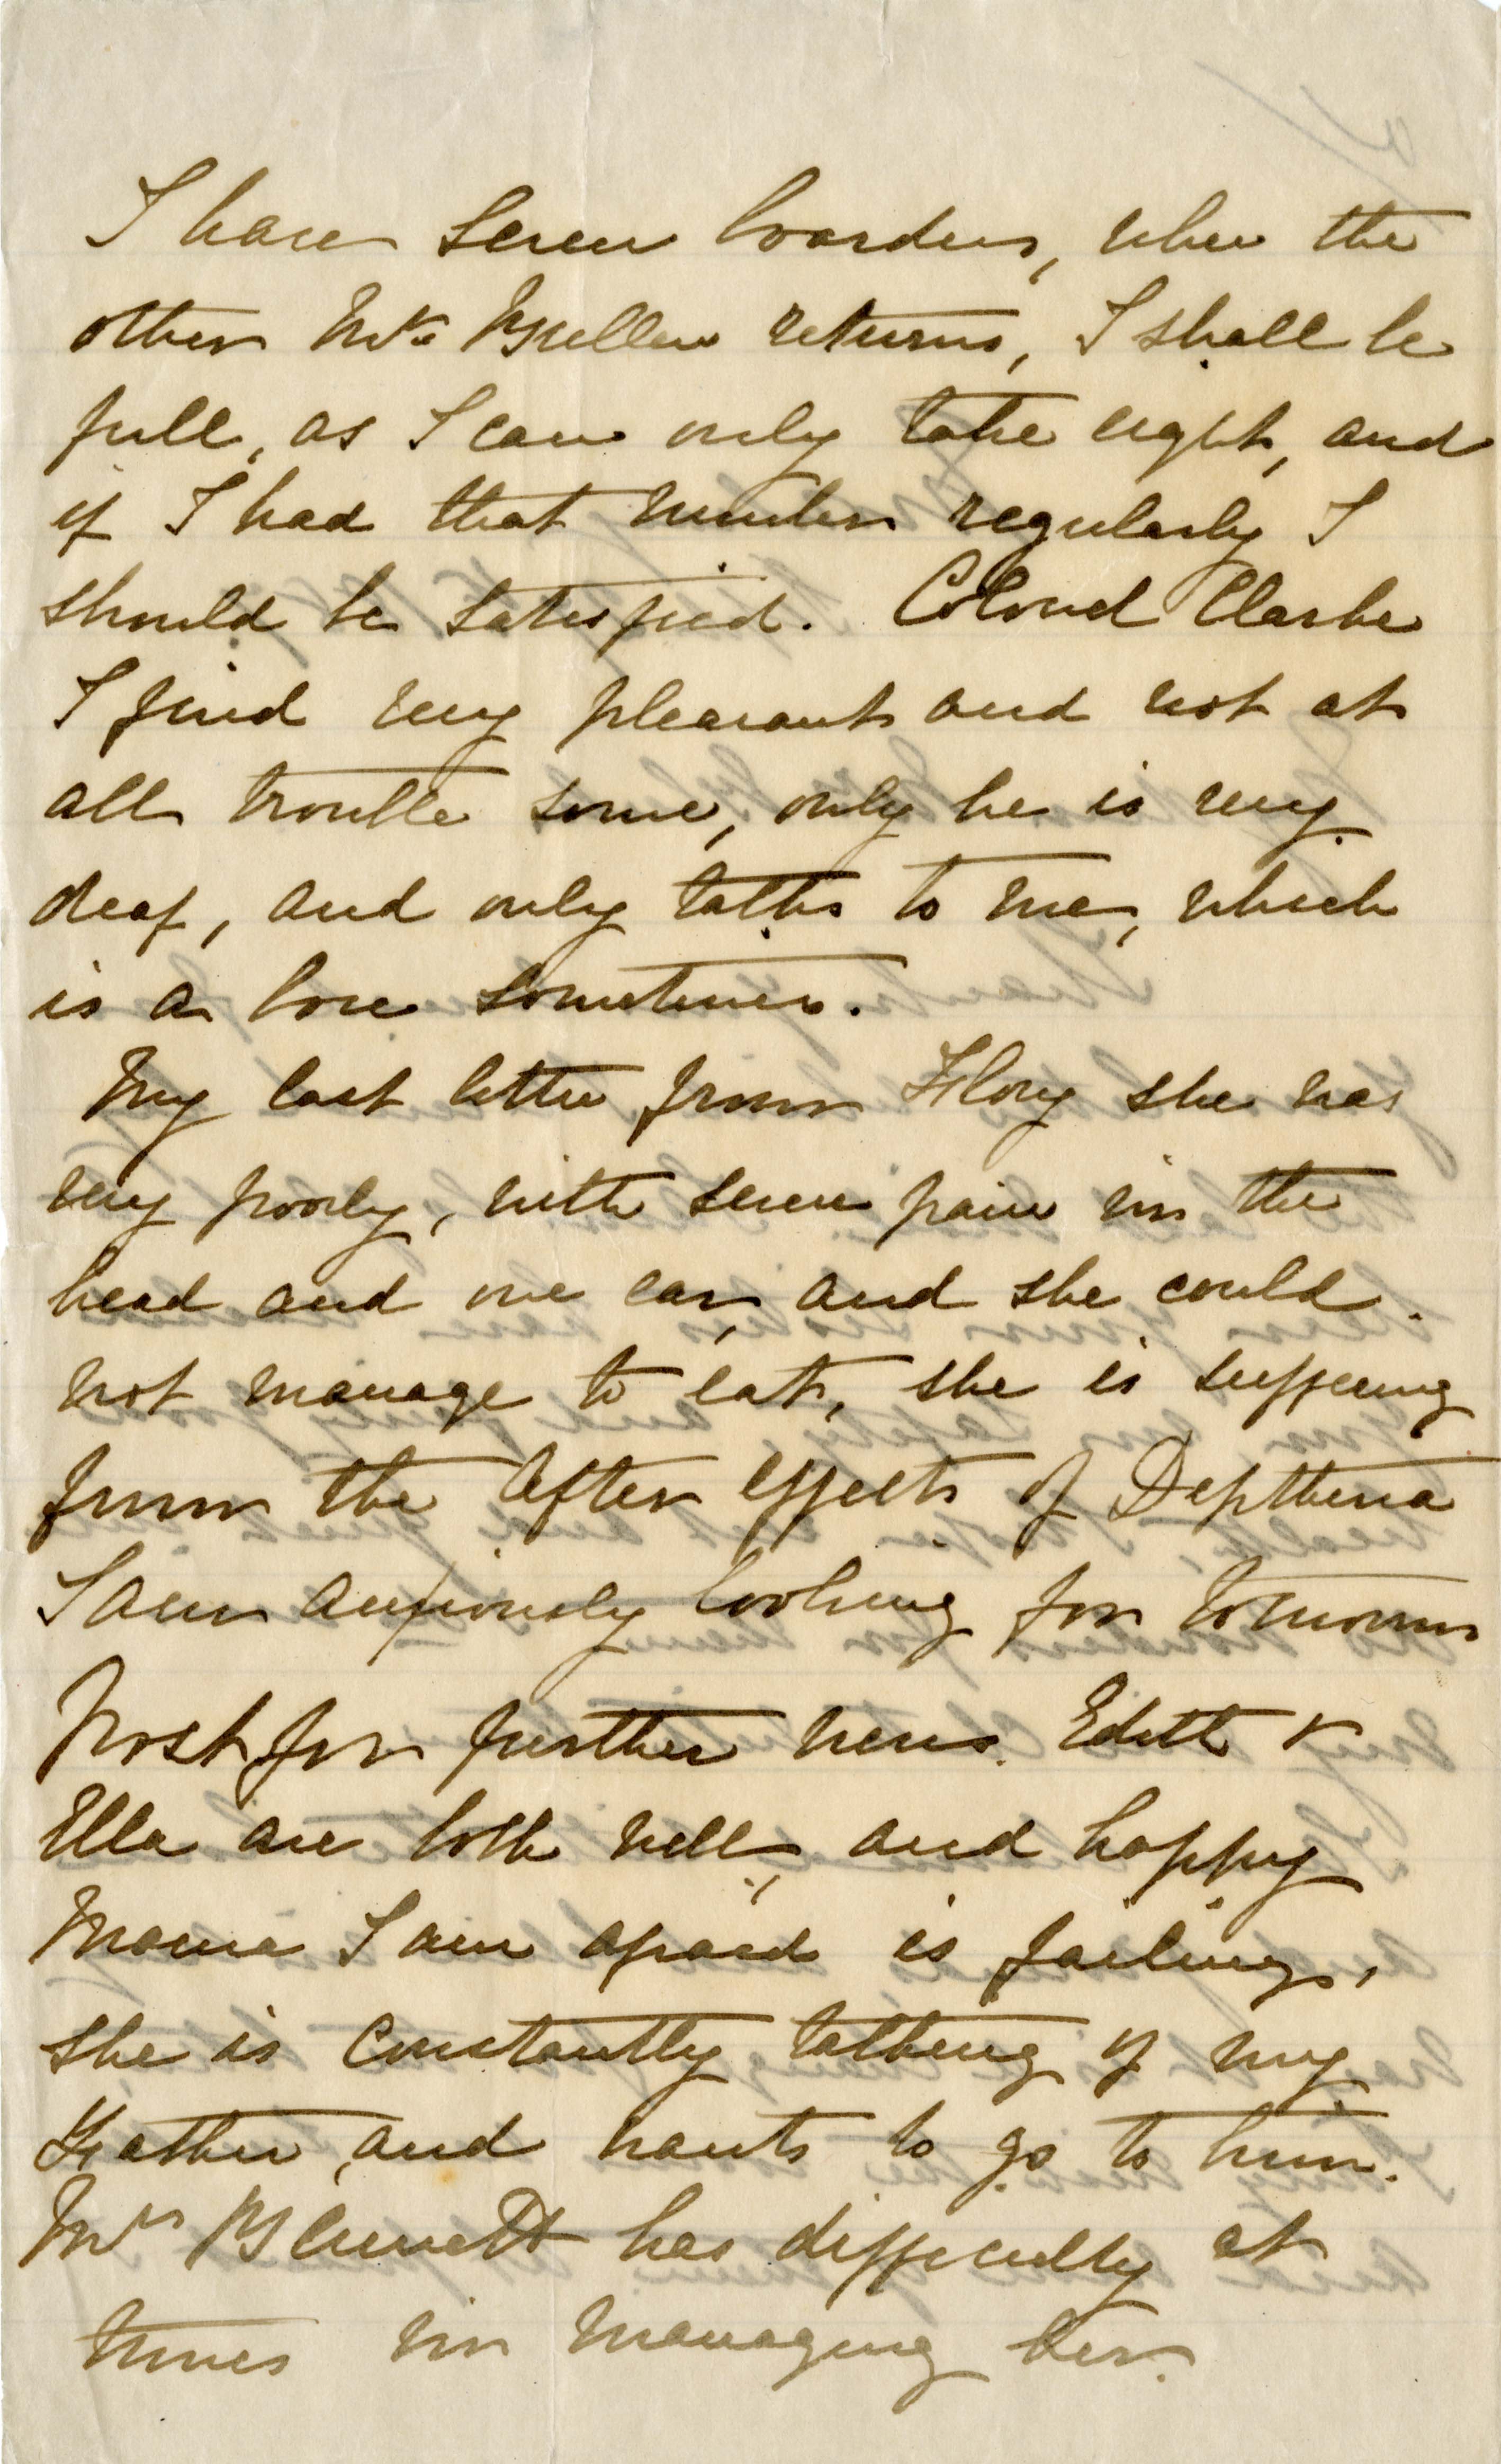 I have seven boarders, when the
other Mr. Bullen returns, I shall be
full, as I can only take eight, and
if I had that number regularly I
should be satisfied. Colonel Clarke
I find very pleasant and not at
all trouble some, only he is very
deaf, and only talks to me, which
is a bore sometimes.
My last letter from Flory she was
very poorly, with severe pain in the
head and one ear, and she could
not manage to eat, she is suffering
from the after effects of Deptheria
I am anxiously looking for tomorrows
Post for further news. Edith &
Ella are both well, and happy
Mama I am afraid is failing,
she is constantly talking of my
Father, and wants to go to him.
Mrs has difficulty at
times in managing her.